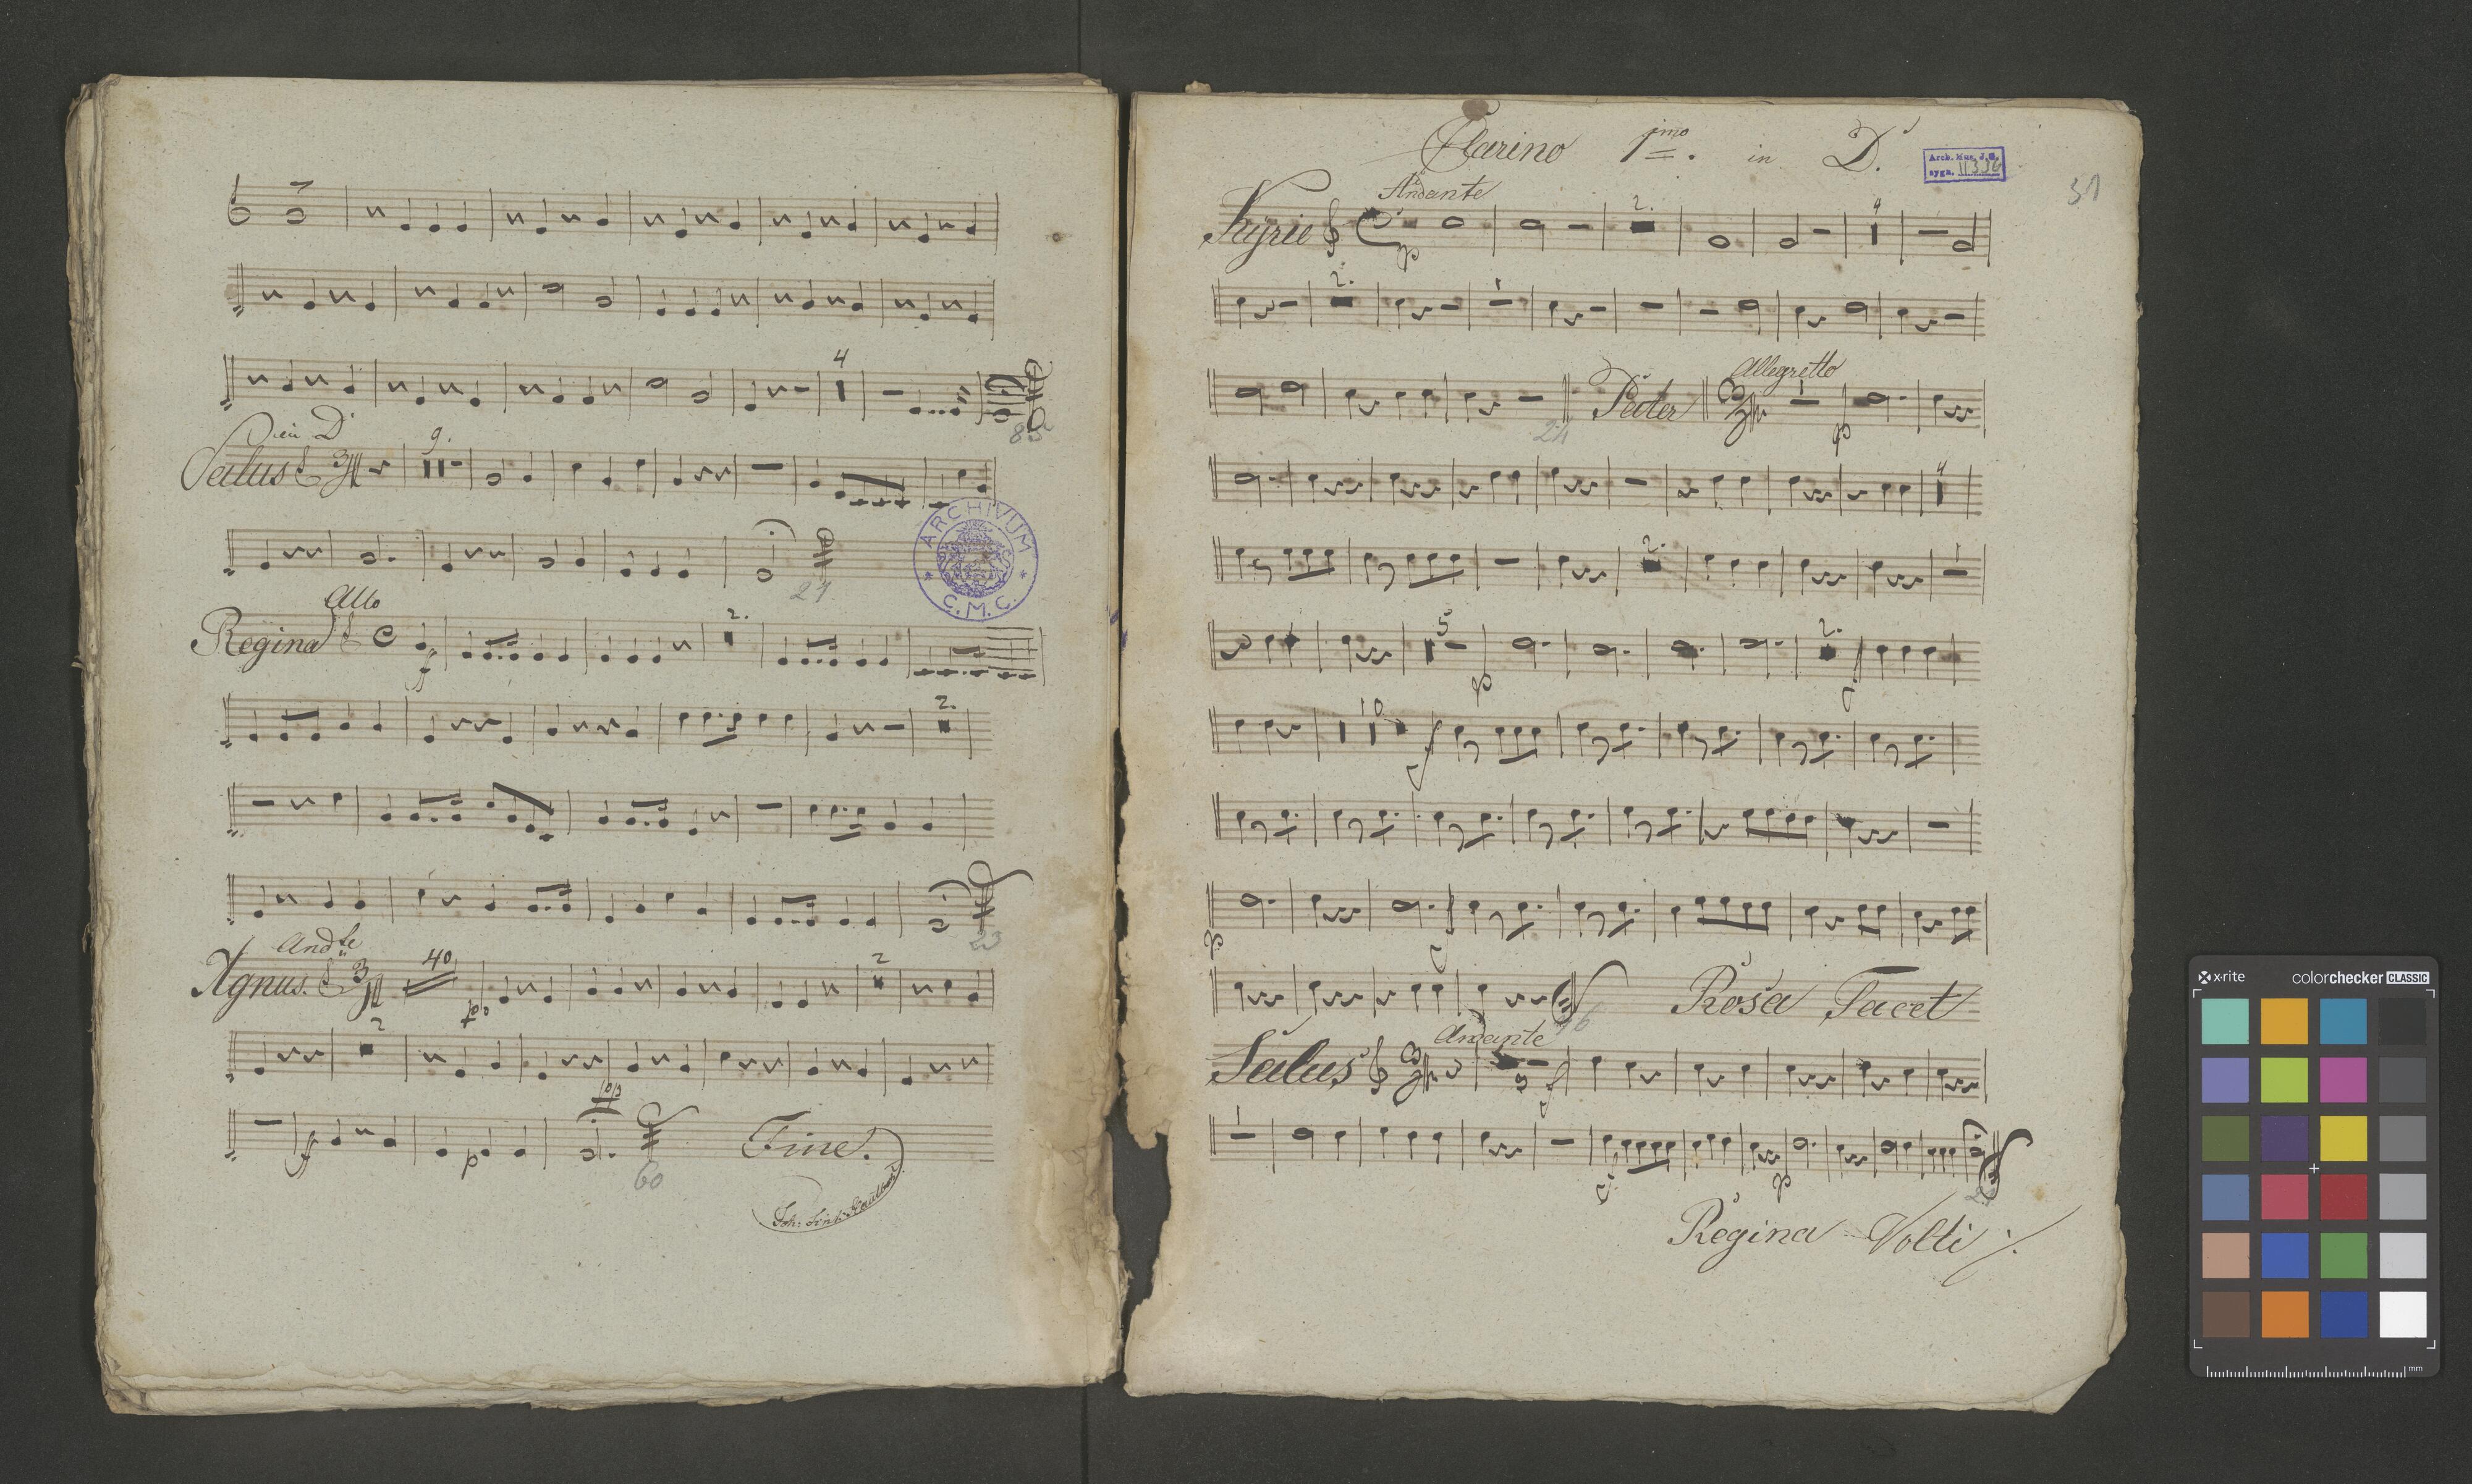 4
85
in D
Salus
9.
21
ARCHIVUM
C. M. C.
Allo
Regina
C
ff
2.
2.
23
Andte
Agnus.
3
40
2
2
ff
p
60
Fine.
Clarino 1mo. in D.
Arch. Mus. J.G.
sygn. II 336
31
Andante
Kyrie
p
2.
4
2.
Allegretto
Pater
24
p
4
2.
5
p
2.
f
10
f
p
Rosa Tacet
Andante
Salus
f
p
Regina Volti
x-rite
colorchecker CLASSIC
mm